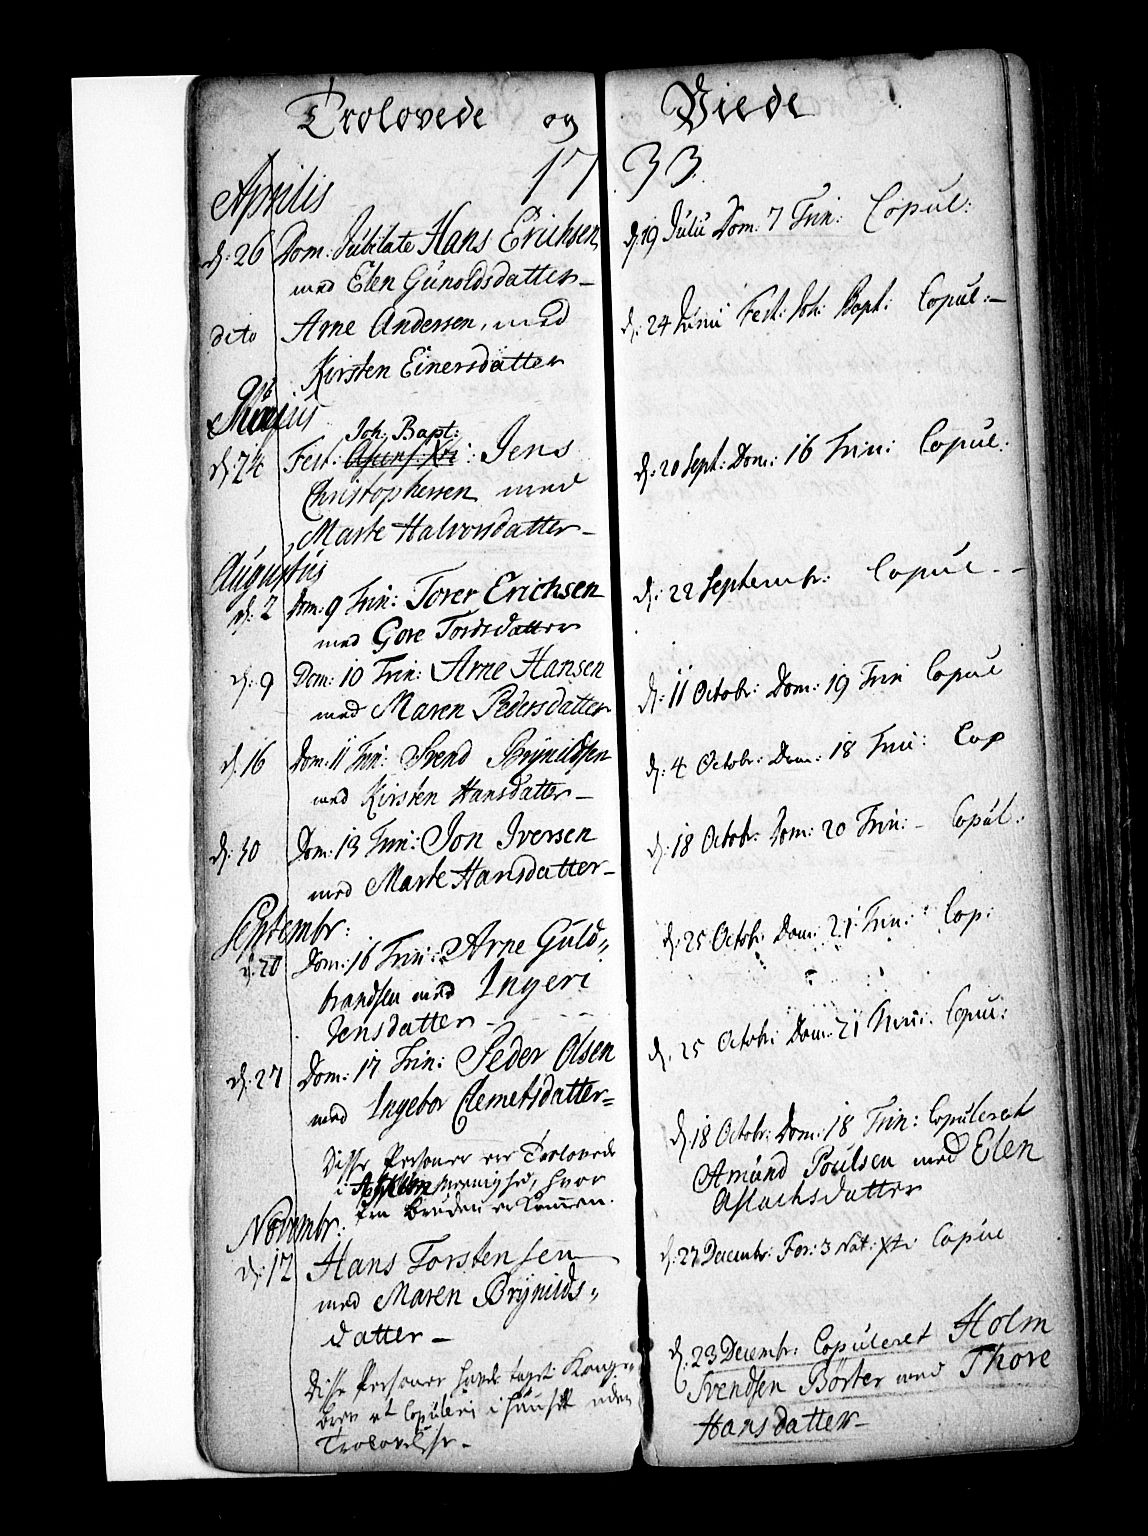 Trolovede og Viede
1733.
Aprilis
d: 26 Dom: Jubilate Hans Erichsen
med Elen Gunoldsdatter –
dito Arne Andersen, med
Kirsten Einersdatter
d: 24 Fest: Joh: Bapt: Jens
Christophersen med
Marte Halvorsdatter –
Augustus
d: 2 Dom: 9 Trin: Torer Erichsen
med Gore Tordsdatter
d: 9 Dom: 10 Trin: Arne Hansen
med Maren Pedersdatter
d: 16 Dom: 11 Trin: Svend Brÿnildsen
med Kirsten Hansdatter –
d: 30 Dom: 13 Trin: Jon Iversen
med Marte Hansdatter –
Septembr:
d: 20 Dom: 16 Trin: Arne Guld„
brandsen med Ingeri
Jensdatter –
d: 27 Dom: 17 Trin: Peder Olsen
med Ingebor Clemetsdatter=
Disse Personer ere Trolovede
i menighed, hvor
fra bruden er kommen.
Novembr:
d: 12 Hans Torstensen
med Maren Brÿnilds„
datter –
Disse Personer havde taget Konge„
brev at Copuleris i huuset uden
Trolovelse –
d: 19 Julii Dom: 7 Trin: Copul:
d: 24 Junii Fest: Joh: Bapt: Copul: –
d: 20 Sept: Dom: 16 Trin: Copul:
d: 22 Septembr: Copul –
d: 11 Octobr: Dom: 19 Trin Copul
d: 4 Octobr: Dom: 18 Trin: Cop
d: 18 Octobr: Dom: 20 Trin: – Copul:
d: 25 Octobr: Dom: 21 Trin: Cop:
d: 25 Octobr: Dom: 21 Trin: Copul:
d: 18 Octobr: Dom: 18 Trin: Copuleret
Amund Poulsen med Elen
Aslachsdatter
d: 27 Decembr: Fer: 3 Nat: Xti Copul
d: 23 Decembr: Copuleret Holm
Svendsen Börter med Thore
Hansdatter –